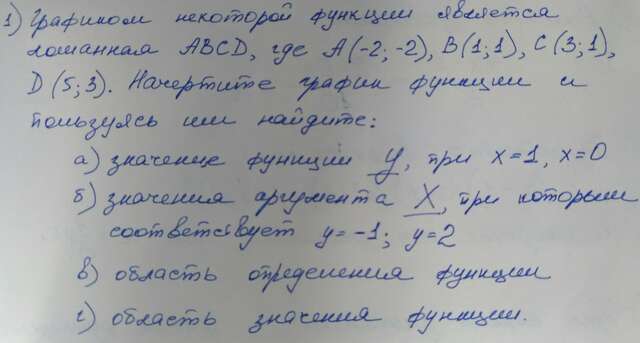 1) Графиком некоторой функции является
ломанная ABCD, где A(-2; -2), B(1; 1), C(3; 1),
D(5; 3). Начертите график функции и
пользуясь им найдите:
а) значение функции y, при x=1, x=0
б) значения аргумента X, при которым
соответствует y=-1; y=2
в) область определения функции
г) область значения функции.